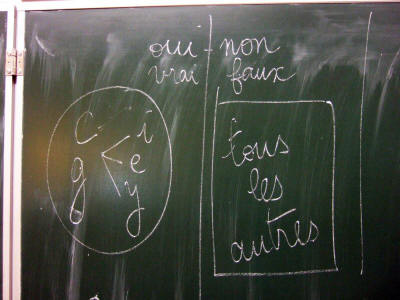 oui - non
vrai faux
c i
g < e
y
tous
les
autres